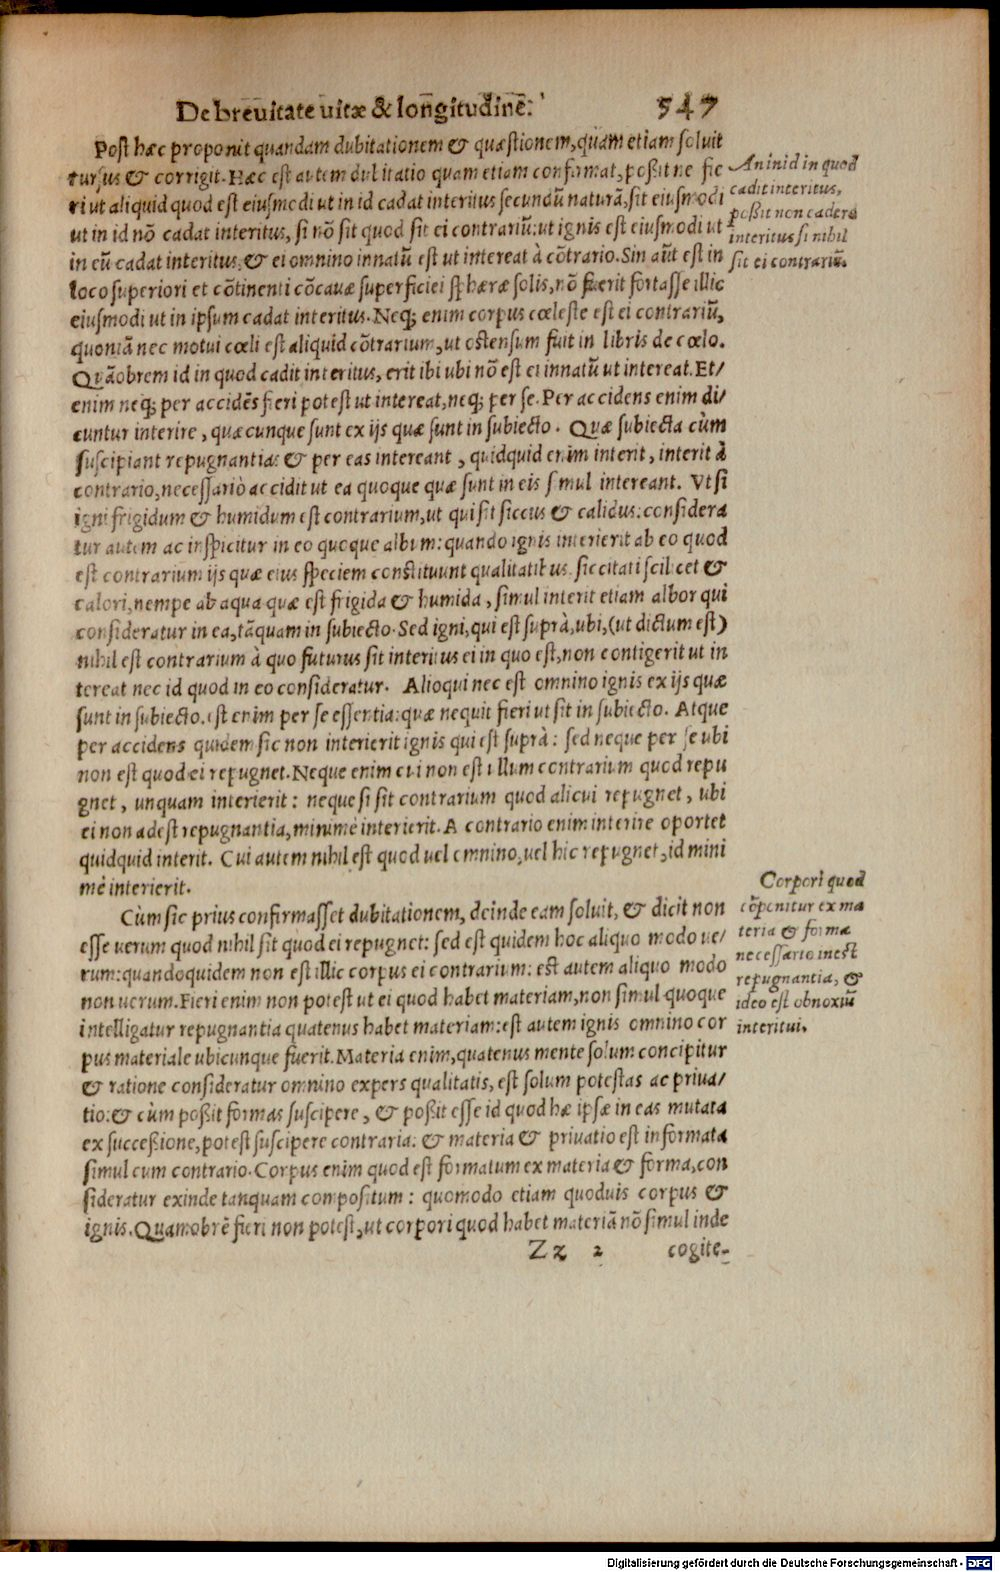 De breuitate uitæ & longitudine. 547
Post hæc proponit quandam dubitationem & quæstionem, quam etiam soluit
rursus & corrigit. Hæc est autem dubitatio quam etiam confirmat, poßit ne fie
ri ut aliquid quod est eiusmodi ut in id cadat interitus secundũ naturã, sit eiusmodi
ut in id nõ cadat interitus, si nõ sit quod sit ei contrariũ: ut ignis est eiusmodi ut
in eũ cadat interitus, & ei omnino innatũ est ut intereat à cõtrario. Sin aũt est in
loco superiori et cõtinenti cõcauæ superficiei sphæræ solis, nõ fuerit fortasse illic
eiusmodi ut in ipsum cadat interitus. Neq; enim corpus cœleste est ei contrariũ,
quoniã nec motui cœli est aliquid cõtrarium, ut ostensum fuit in libris de cœlo.
Quãobrem id in quod cadit interitus, erit ibi ubi nõ est ei innatũ ut intereat. Et/
enim neq; per accidẽs fieri potest ut intereat, neq; per se. Per accidens enim di/
cuntur interire, quæcunque sunt ex ijs quæ sunt in subiecto. Quæ subiecta cùm
suscipiant repugnantia: & per eas intereant, quidquid enim interit, interit à
contrario, necessariò accidit ut ea quoque quæ sunt in eis simul intereant. Vt si
igni frigidum & humidum est contrarium, ut qui sit siccus & calidus: considera
tur autem ac inspicitur in eo quoque album: quando ignis interierit ab eo quod
est contrarium ijs quæ eius speciem constituunt qualitatibus, siccitati scilicet &
calori, nempe ab aqua quæ est frigida & humida, simul interit etiam albor qui
consideratur in ea, tãquam in subiecto. Sed igni, qui est suprà, ubi, (ut dictum est)
nihil est contrarium à quo futurus sit interitus ei in quo est, non contigerit ut in
tereat nec id quod in eo consideratur. Alioqui nec est omnino ignis ex ijs quæ
sunt in subiecto. est enim per se essentia: quæ nequit fieri ut sit in subiecto. Atque
per accidens quidem sic non interierit ignis qui est suprà: sed neque per se ubi
non est quod ei repugnet. Neque enim cui non est illum contrarium quod repu
gnet, unquam interierit: neque si sit contrarium quod alicui repugnet, ubi
ei non adest repugnantia, minimè interierit. A contrario enim interire oportet
quidquid interit. Cui autem nihil est quod uel omnino, uel hic repugnet, id mini
mè interierit.
Cùm sic prius confirmasset dubitationem, deinde eam soluit, & dicit non
esse uerum quod nihil sit quod ei repugnet: sed est quidem hoc aliquo modo ue/
rum: quandoquidem non est illic corpus ei contrarium: est autem aliquo modo
non uerum. Fieri enim non potest ut ei quod habet materiam, non simul quoque
intelligatur repugnantia quatenus habet materiam: est autem ignis omnino cor
pus materiale ubicunque fuerit. Materia enim, quatenus mente solum concipitur
& ratione consideratur omnino expers qualitatis, est solum potestas ac priua/
tio: & cùm poßit formas suscipere, & poßit esse id quod hæ ipsæ in eas mutata
ex succeßione, potest suscipere contraria: & materia & priuatio est informata
simul cum contrario. Corpus enim quod est formatum ex materia & forma, con
sideratur exinde tanquam compositum: quomodo etiam quoduis corpus &
ignis. Quamobrẽ fieri non potest, ut corpori quod habet materiã nõ simul inde
Zz 2 cogite-
An in id in quod
cadit interitus,
poßit non cadere
interitus si nihil
sit ei contrariũ.
Corpori quod
cõponitur ex ma
teria & forma
necessario inest
repugnantia, &
ideo est obnoxiũ
interitui.
Digitalisierung gefördert durch die Deutsche Forschungsgemeinschaft - DFG